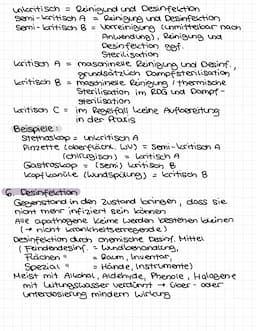 unkritisch = Reinigung und Desinfektion
semi-kritisch A = Reinigung und Desinfektion
Semi-kritisch B = Vorreinigung (unmittelbar nach
Anwendung), Reinigung und
Desinfektion ggf.
Sterilisation
kritisch A = maschinelle Reinigung und Desinf.,
grundsätzlich Dampfsterilisation
kritisch B = maschinelle Reinigung / thermische
Sterilisation im RDG und Dampf-
sterilisation
kritisch C = im Regelfall keine Aufbereitung
in der Praxis
Beispiele:
Stethoskop = unkritisch
Pinzette (oberflächl. WV) = Semi-kritisch A
(chirurgisch) = kritisch A
Gastroskop = (semi) kritisch B
Kopfkanüle (Wundspülung) = kritisch B
6. Desinfektion
Gegenstand in den Zustand bringen, dass sie
nicht mehr infiziert sein können
Alle apathogene Keime werden bestehen bleiben
(→ nicht krankheitserregende)
Desinfektion durch chemische Desinf. Mittel
(Feindesinf. = Wundbehandlung,
Flächen = = Raum, Inventar,
Spezial = = Hände, Instrumente)
Meist mit Alkohol, Aldehyde, Phenole, Halogene
mit Leitungswasser verdünnt → Über- oder
Unterdosierung mindern Wirkung